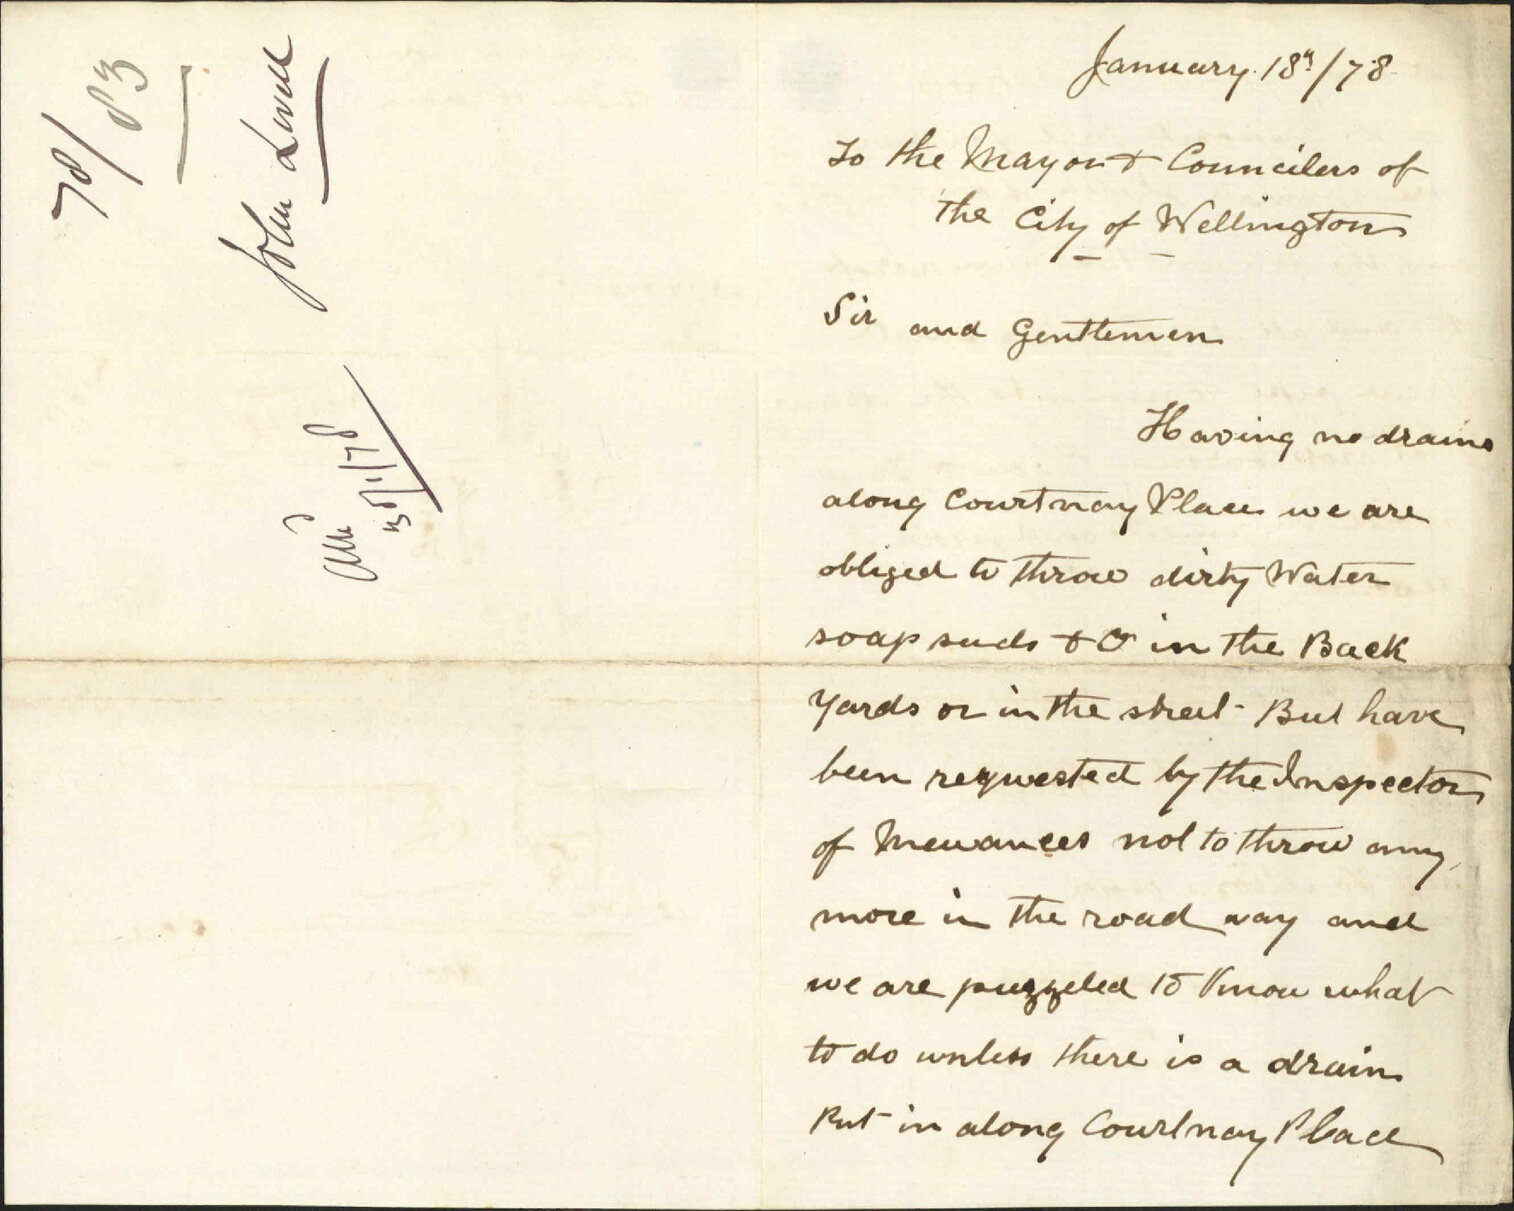 78/83
John
25/1/78
January 18th/78
To the Mayor & Councilers of
the City of Wellington
Sir and Gentlemen
Having no drains
along Courtnay Place we are
obliged to throw dirty Water
soap suds &c in the Back
Yards or in the street But have
been requested by the Inspector
of not to throw any
more in the road way and
we are puzzeled to Know what
to do unless there is a drain
Put in along Courtnay Place